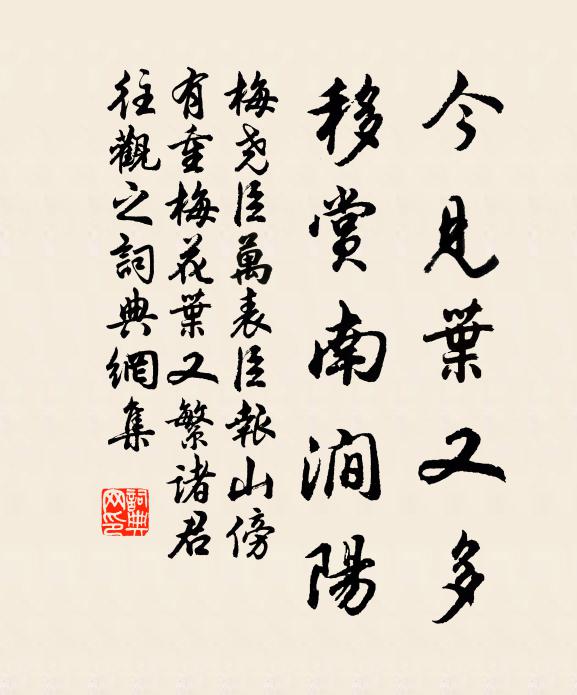 今見葉又多
移賞南澗陽
梅堯臣萬表臣報山傍
有重梅花葉又繁諸君
往觀之詞典網集
詞典网印